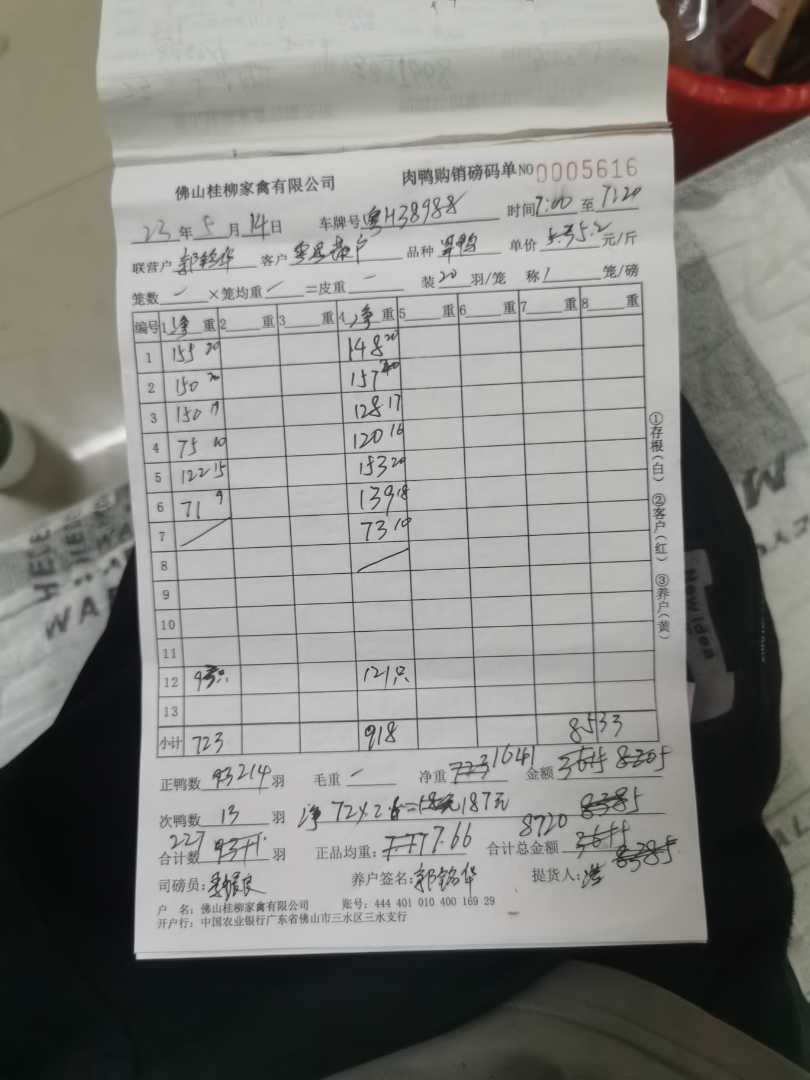 佛山桂柳家禽有限公司 肉鸭购销磅码单 NO 0005616
23 年 5 月 14 日 车牌号 粤H38988 时间 7:00 至 7:20
联营户 郭铭华 客户 品种 单价 5.2 元/斤
笼数 — ×笼均重 — =皮重 — 装 20 羽/笼 称 1 笼/磅
编号 1 净 重 2 重 3 重 4 净 重 5 重 6 重 7 重 8 重
1 155 20 148 20
2 150 20 157 20
3 150 19 128 17
4 75 10 120 16
5 122 15 153 20
6 71 9 139 18
7 73 10
8
9
10
11
12 93只 121只
13
小计 723 918 8533
正鸭数 93 214 羽 毛重 — 净重 723 1641 金额
次鸭数 13 羽 净 72×2.6= 187元 8385
合计数 227 羽 正品均重: 7.66 合计总金额 8720 8385
司磅员: 养户签名: 郭铭华 提货人:
户 名: 佛山桂柳家禽有限公司 账号: 444 401 010 400 169 29
开户行: 中国农业银行广东省佛山市三水区三水支行
①存根(白) ②客户(红) ③养户(黄)
New idea